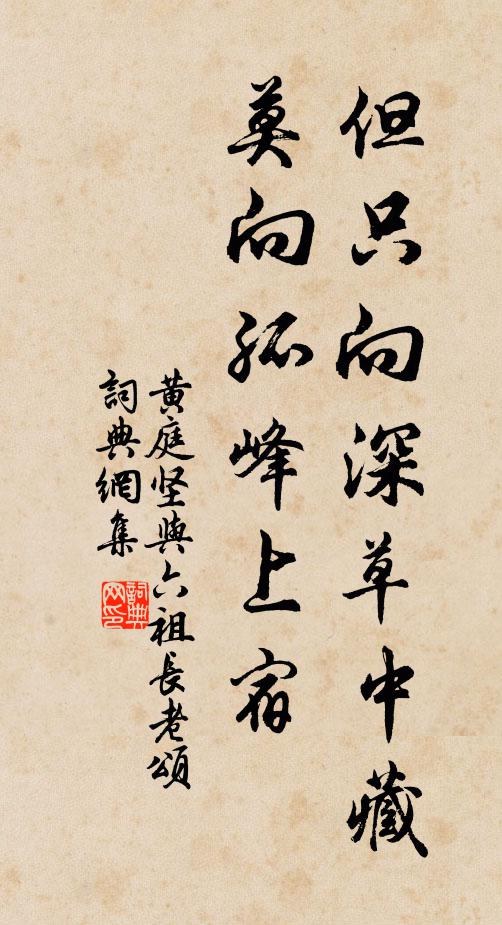 但只向深草中藏
莫向孤峰上宿
黄庭坚與六祖長老頌
詞典網集
詞典
网印